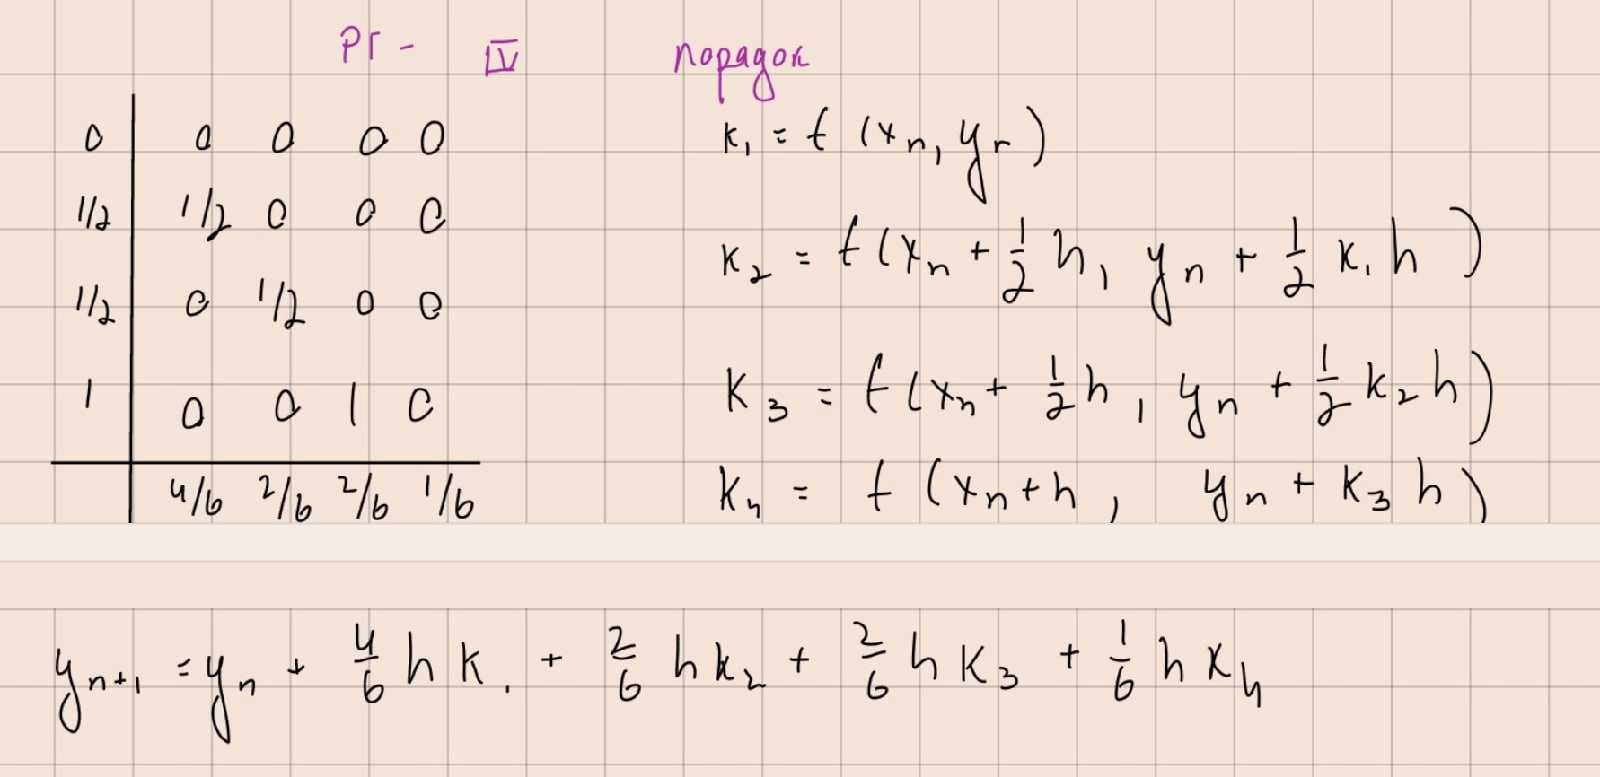 РГ - IV порядок
0 | 0 0 0 0
1/2 | 1/2 0 0 0
1/2 | 0 1/2 0 0
1 | 0 0 1 0
| 4/6 2/6 2/6 1/6
k₁ = f (xₙ, yₙ)
k₂ = f(xₙ + 1/2 h, yₙ + 1/2 k₁ h)
k₃ = f(xₙ + 1/2 h, yₙ + 1/2 k₂ h)
k₄ = f (xₙ + h, yₙ + k₃ h)
yₙ₊₁ = yₙ + 4/6 h k₁ + 2/6 h k₂ + 2/6 h k₃ + 1/6 h k₄